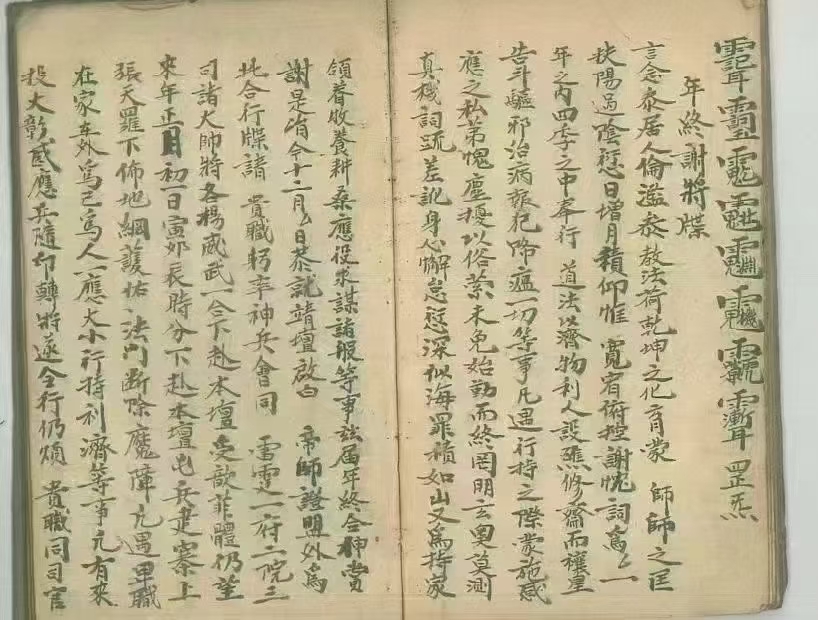 罡炁
年終謝將牒
言念泰居人倫濫泰教法荷乾坤之化育蒙 師師之匡
扶陽過陰愆日增月積仰惟 寬宥俯控謝忱詞爲〻一
年之内四季之中奉行 道法以濟物利人設醮修齋而禳星
告斗驅邪治病犯除瘟一切等事凡遇行持之際蒙施感
應之私弟愧塵擾以俗縈未免始勤而終罔明玄奥莫測
真機詞疏差訛身心懈怠愆深似海罪積如山又爲持家
領眷收養耕桑應役求謀諸般等事兹届年終合伸賞
謝是省今十二月〻日恭就靖壇啟白 帝師證盟外爲
此合行牒請 貴職躬率神兵會同 雷霆一府二院三
司諸大帥將各楊威武一合下赴本壇受歆菲體仍望
來年正月初一日寅卯辰時分下赴本壇屯兵建寨上
張天羅下佈地網護祐 法門斷除魔障凡遇畢職
在家在外爲己爲人一應大小行持利濟等事凡有來
投大彰感應兵隨印轉將逐令行仍煩 貴職同司官